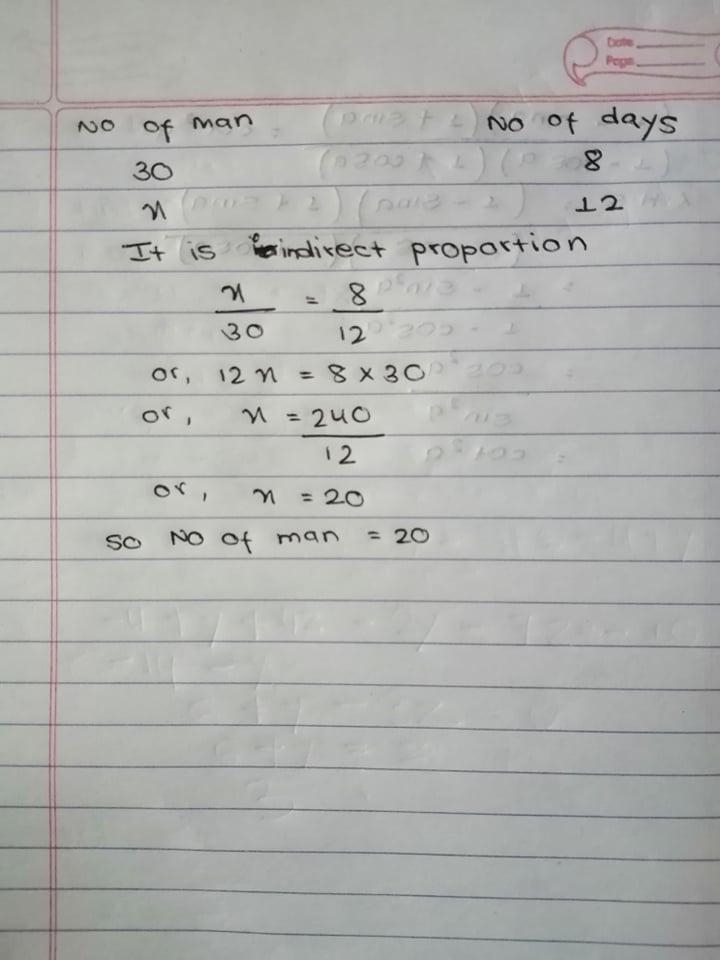 Date
Page
No of man No of days
30 8
x 12
It is indirect proportion
x/30 = 8/12
or, 12x = 8 × 30
or, x = 240/12
or, x = 20
So No of man = 20